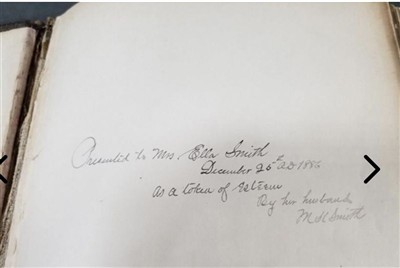 Presented to Mrs. Ella Smith
December 25th AD
as a token of Esteem
By her husband
M Smith